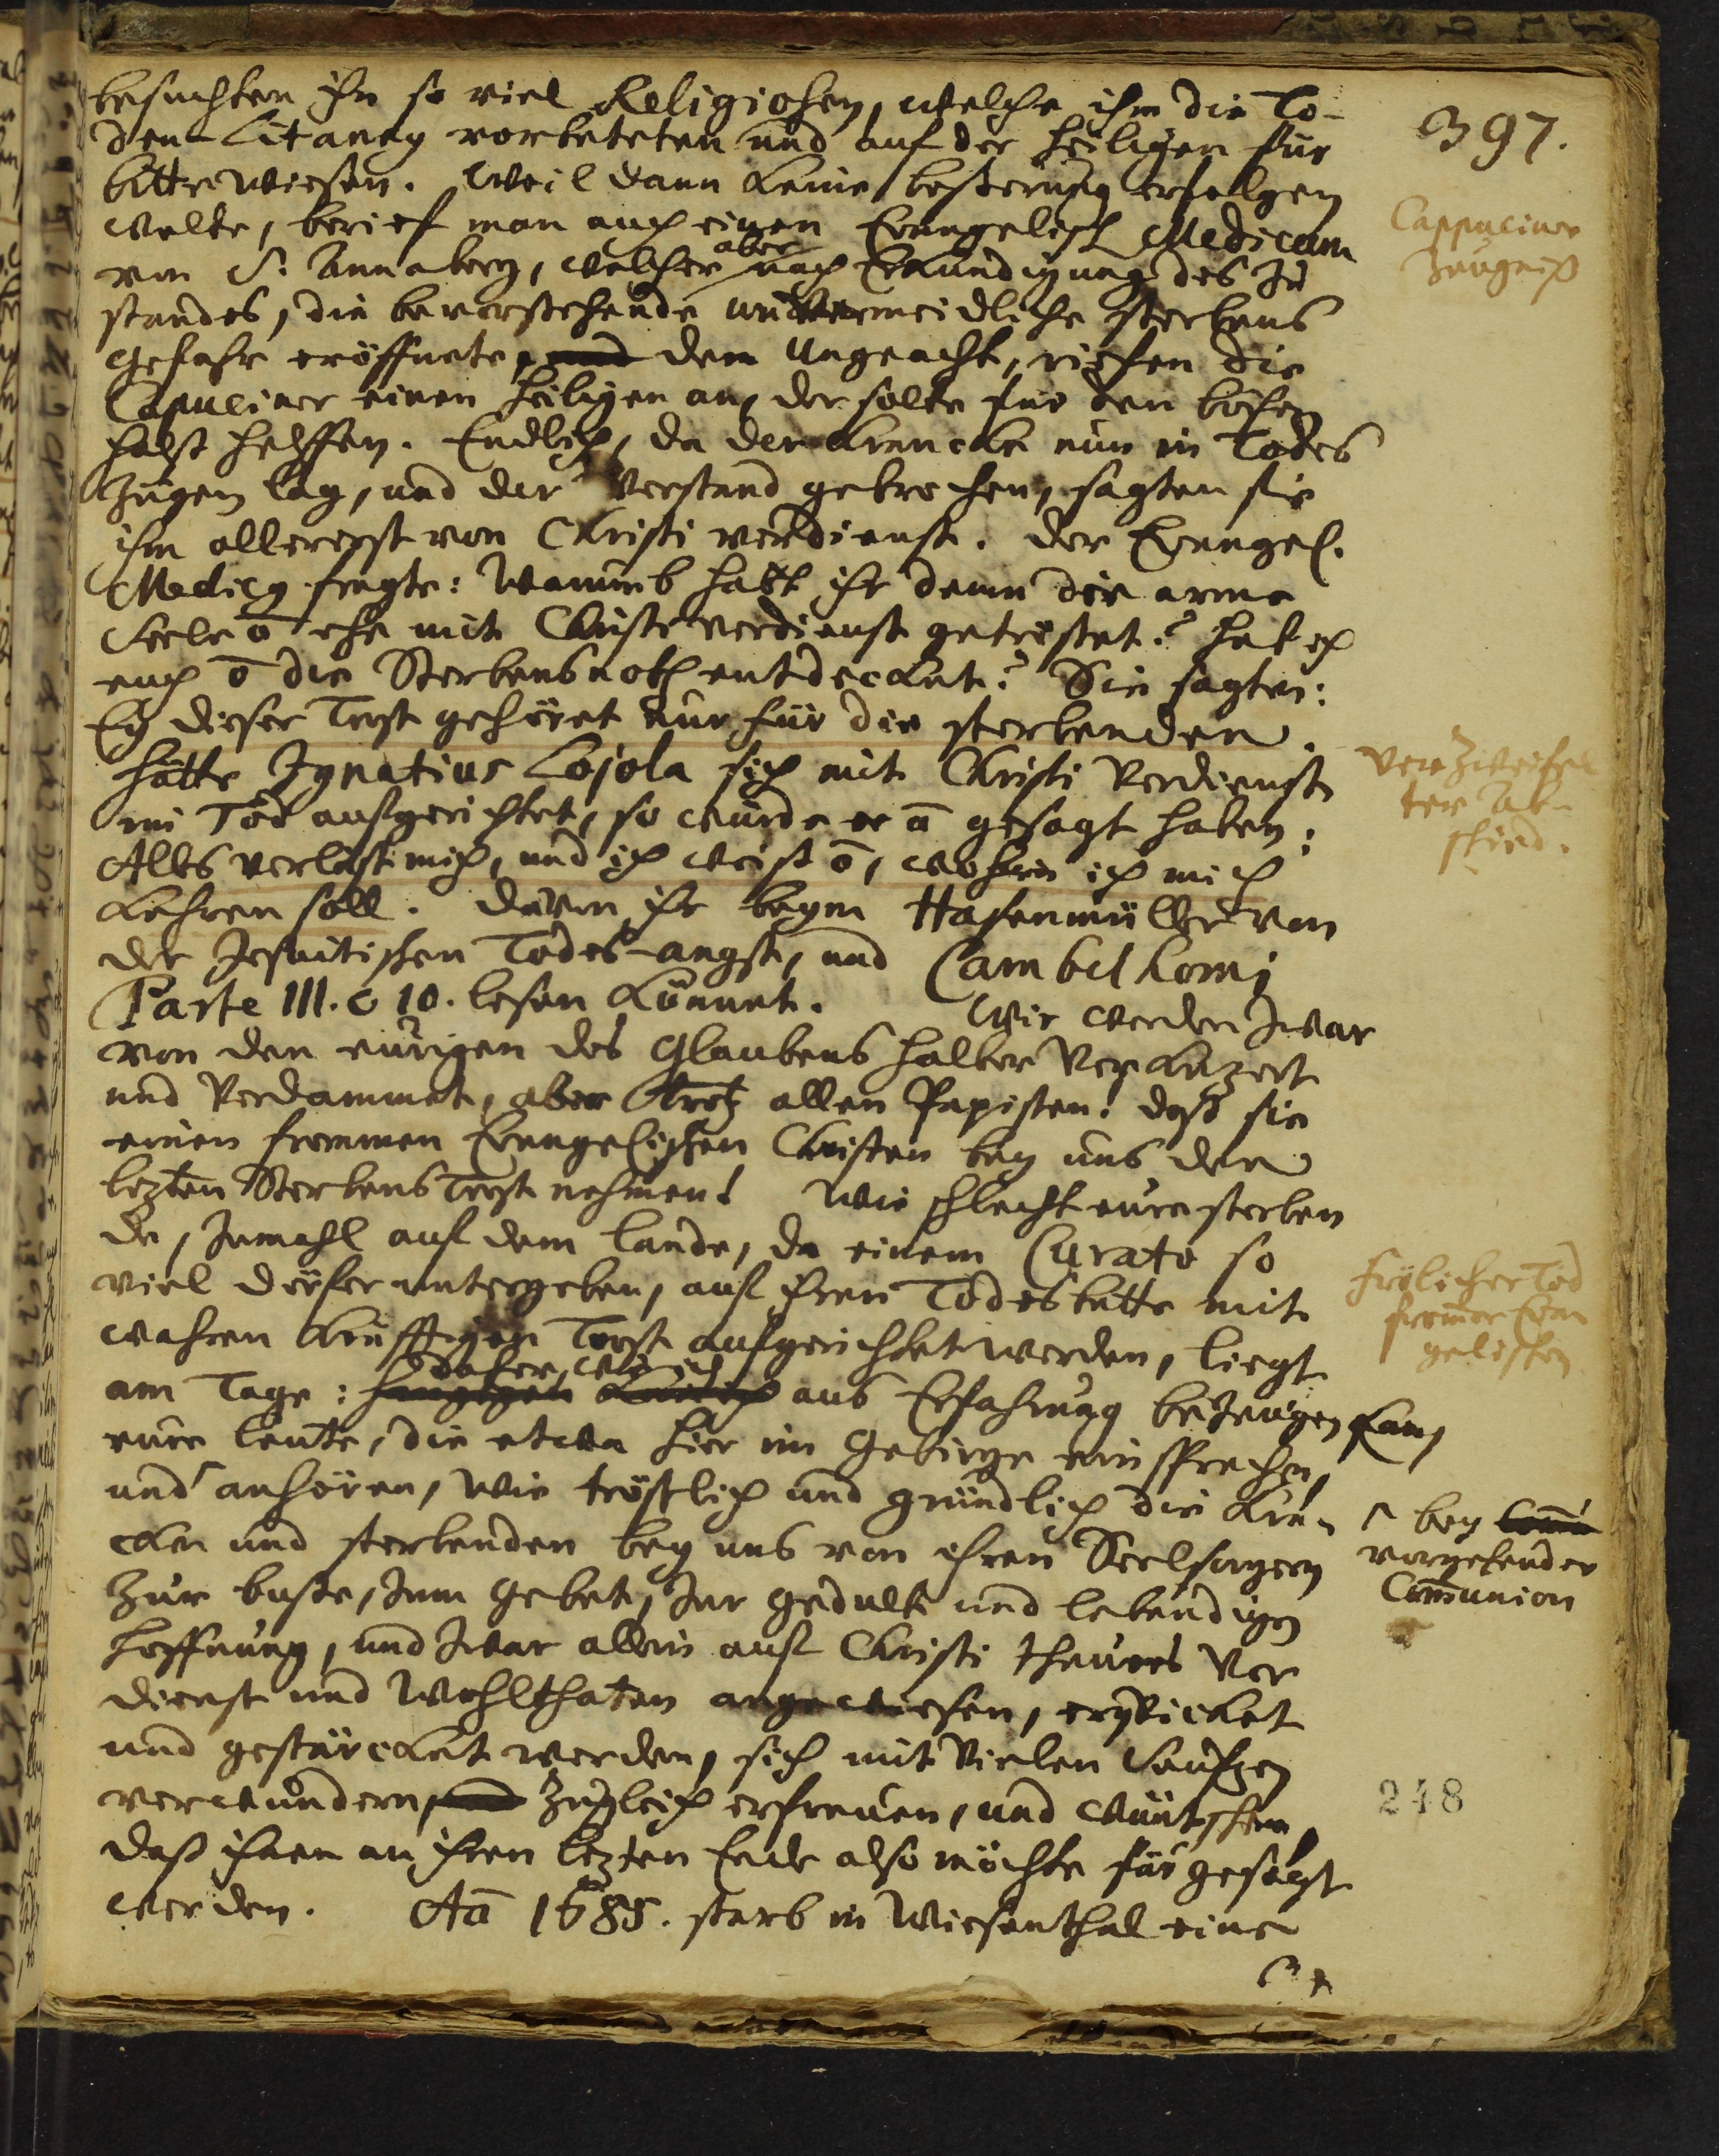 397.
besuchten ihn so viel Religiosen, welche ihm die To-
den-Litaney vorbeteten und auf der Heiligen für
bitte wiesen. Weil dann keine besserung erfolgen
wolte, berief man auch einen Evangelisch Medicum
von S. Annaberg, welcher aber nach Erkundigung des Zu
standes, die bevorstehende unvermeidliche sterbens
gefahr eröffnete, und dem ungeacht, riefen die
Capuciner einen Heiligen an, der solte für den bösen
halß helffen. Endlich, da der krancke nun in Todes
zügen lag, und der Verstand gebrochen, sagten sie
ihm allererst von Christi verdienst. Der Evangel.
Medicq fragte: Warumb habt ihr denn die arme
Seele õ ehe mit Christi verdienst getröstet? hab ich
euch õ die Sterbensnoth entdecket? Sie sagten:
Ey dieser Trost gehöret nur für die sterbenden.
Hätte Ignatius Lojola sich mit Christi Verdienst
im Tod aufgerichtet, so würde er õ gesagt haben:
Alles verläst mich, und ich weiß õ, wohin ich mich
kehren soll. Davon ihr beym Hasenmüller von
der Jesuitischen Todes-angst, und Cambilhomj
Parte III. c 10. lesen könnet. Wir werden zwar
von den eurigen des Glaubens halber verketzert
und Verdammet, aber Trotz allen Papisten! daß sie
einen frommen Evangelischen Christen bey uns den
lezten Sterbens Trost nehmen! Wie schlecht eure sterben
de, zumahl auf dem lande, da einem Curato so
viel dörfer untergeben, auf ihren Todesbette mit
wahren kräfftigen Trost aufgerichtet werden, liegt
am Tage: daher, wie ich aus Erfahrung bezeugen kan,
eure leute, die etwa hier im Gebirge einsprechen,
und anhören, wie tröstlich und gründlich die kran-
cken und sterbenden bey uns von ihren Seelsorgern
zur busse, zum Gebet, zur gedult und lebendigen
hoffnung, und zwar allein auf Christi theures Ver
dienst und Wohlthaten angewiesen, erqvicket
und gestärcket werden, sich mit vielen Seufzen
verwundern, zugleich erfreuen, und wüntschen,
daß ihnen an ihren lezten Ende also möchte für gesagt
werden. Aõ 1685. starb in Wiesenthal eine
Cappuciner
Zeugniß
Verzweifel
ter Ab-
schied.
Frölicher Tod
frommer Evan
gelischen
bey
vorgehender
Communion
248